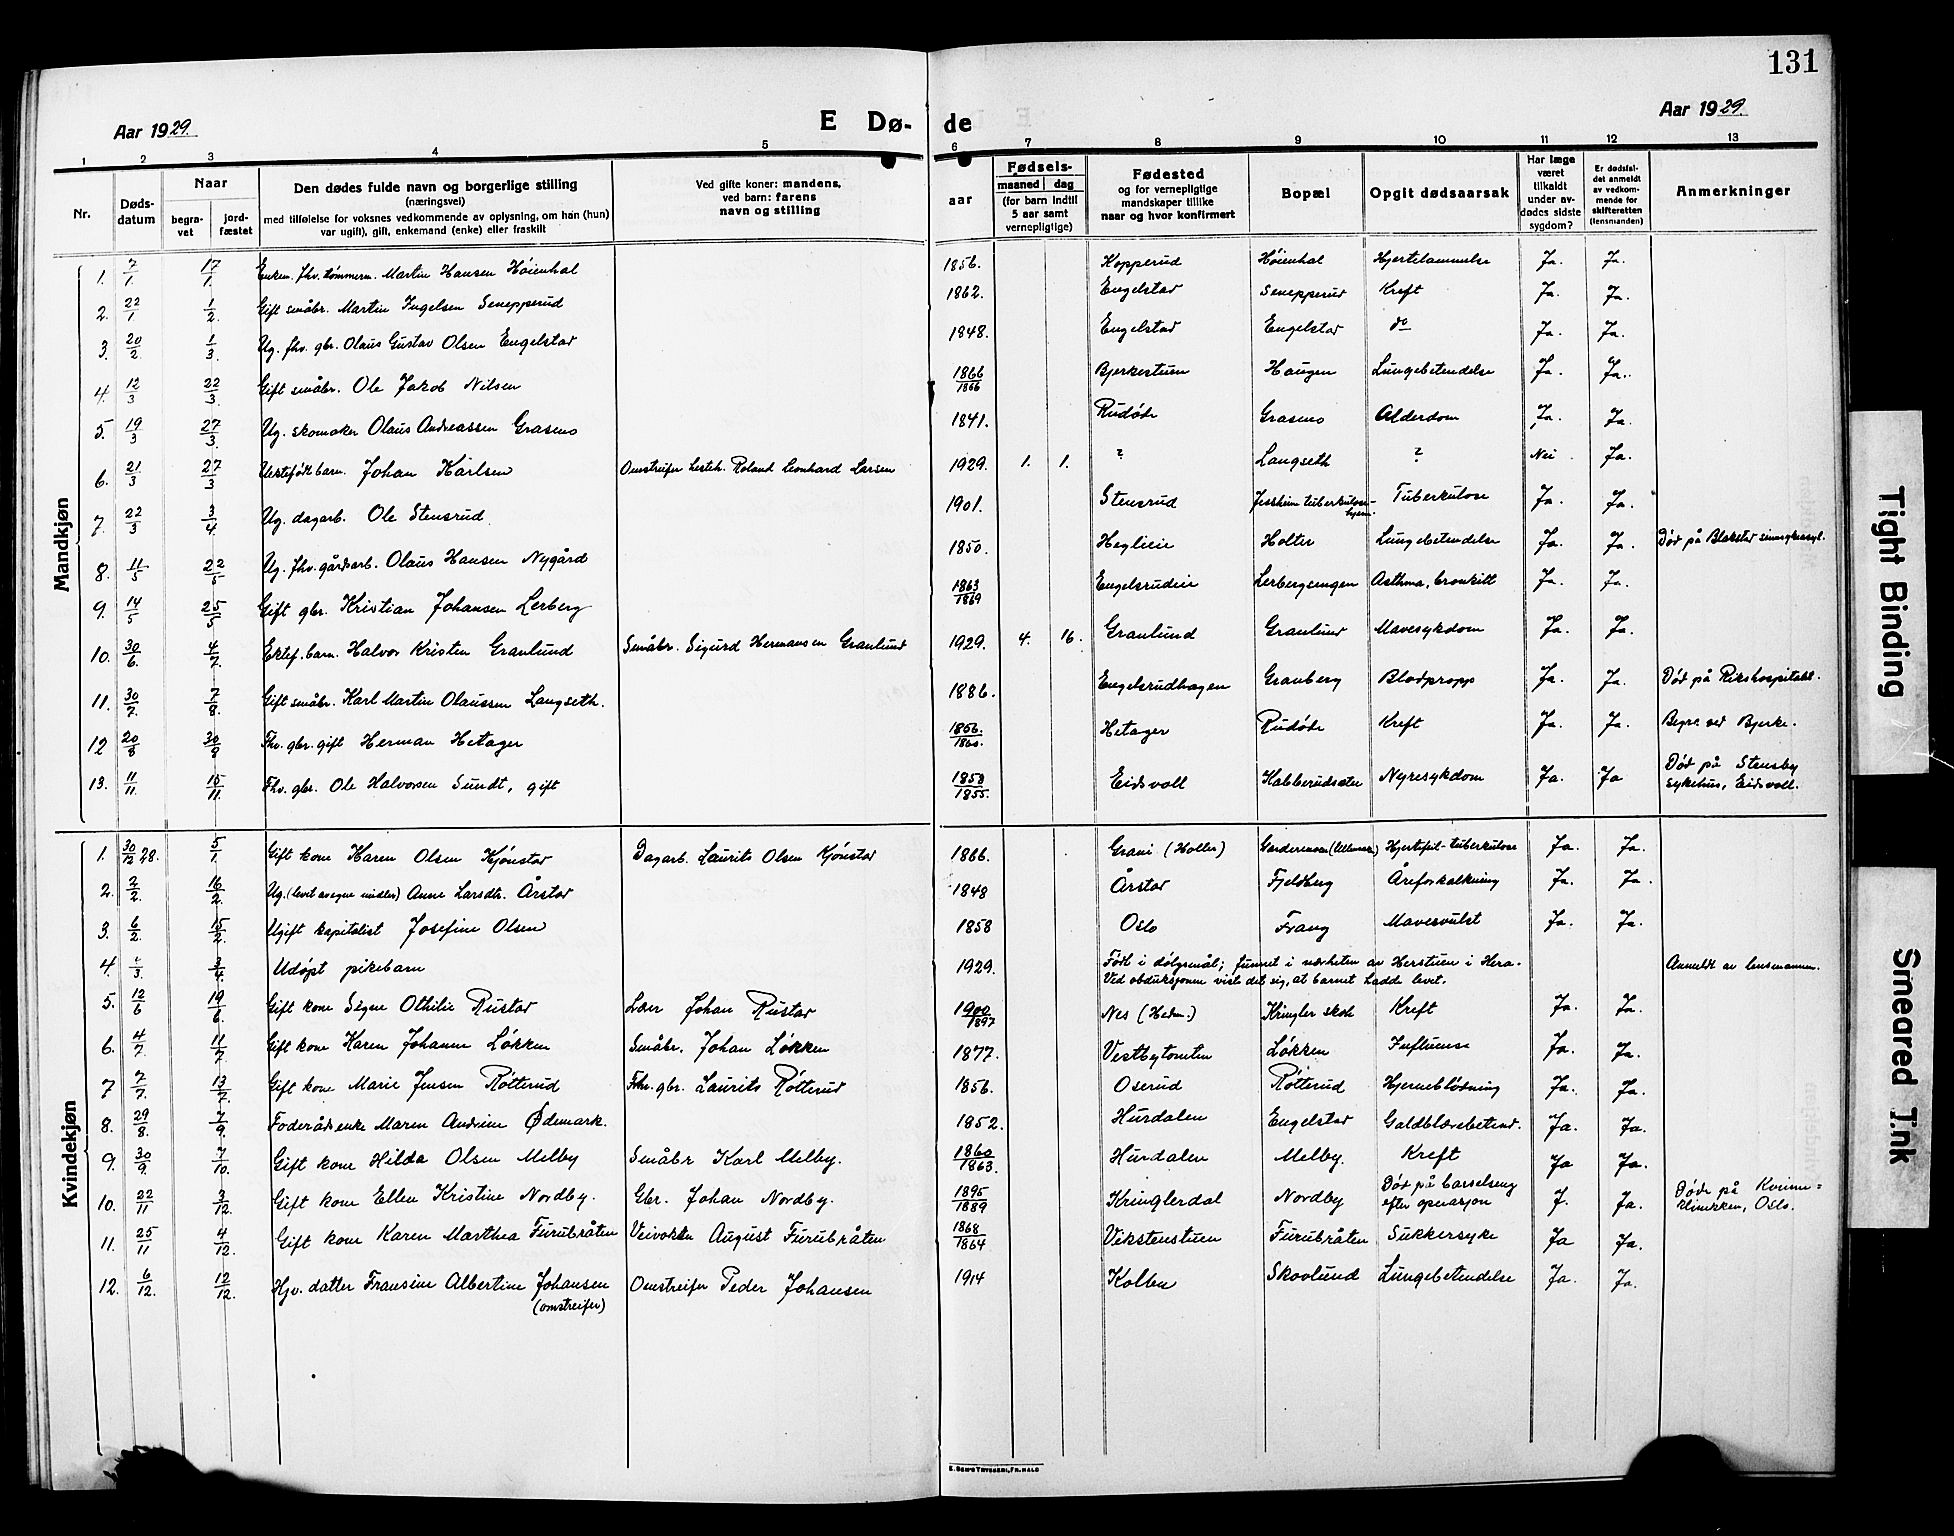 131
Aar 1929.
E Dø-
de
Aar 1929.
1 2 3 4 5 6 7 8 9 10 11 12 13
Nr.
Døds-
datum
Naar
begra-
vet
jord-
fæstet
Den dødes fulde navn og borgerlige stilling
(næringsvei)
med tilføielse for voksnes vedkommende av oplysning, om han (hun)
var ugift, gift, enkemand (enke) eller fraskilt
Ved gifte koner: mandens,
ved barn: farens
navn og stilling
Fødsels-
aar
maaned dag
(for barn indtil
5 aar samt
vernepligtige)
Fødested
og for vernepligtige
mandskaper tillike
naar og hvor konfirmert
Bopæl
Opgit dødsaarsak
Har læge
været
tilkaldt
under av-
dødes sidste
sygdom?
Er dødsfal-
det anmeldt
av vedkom-
mende for
skifteretten
(lensmanden)
Anmerkninger
Mandkjøn
1. 7/1. 17/1. Enkem. fhv. tømmerm. Martin Hansen Høienhal 1856. Kopperud Høienhal Hjertelammelse Ja. Ja.
2. 22/1 1/2. Gift småbr. Martin Ingelsen Senepperud 1862. Engelstad Senepperud Kreft Ja. Ja.
3. 20/2. 1/3. Ug. fhv. gbr. Olaus Gustav Olsen Engelstad 1848. Engelstad Engelstad do Ja. Ja.
4. 12/3 22/3. Gift småbr. Ole Jakob Nilsen 1866/1866 Bjerkestuen Haugen Lungebetendelse Ja. Ja.
5. 19/3 27/3. Ug. skomaker Olaus Andreassen Grasmo 1841. Rudøde Grasmo Alderdom Ja. Ja.
6. 21/3 27/3 Uektefødt barn. Johan Karlsen Omstreifer Roland Leonhard Larsen 1929. 1. 1. ? Langseth ? Nei. Ja.
7. 22/3 3/4 Ug. dagarb. Ole Stensrud. 1901. Stensrud Jessheim tuberkulose-
hjem. Tuberkulose Ja. Ja.
8. 11/5 22/5 Ug. fhv. gårdsarb. Olaus Hansen Nygård 1850. Heglieie Holter Lungebetendelse Ja. Ja. Død på Blakstad sinnsykeasyl.
9. 14/5 25/5 Gift gbr. Kristian Johansen Lerberg 1863/1869 Engelsrudeie Lerbergsengen Asthma, bronkitt Ja. Ja.
10. 30/6. 4/7. Ektef. barn. Halvor Kristen Granlund Småbr. Sigurd Hermansen Granlund 1929. 4. 16. Granlund Granlund Mavesykdom Ja. Ja.
11. 30/7. 7/8. Gift småbr. Karl Martin Olaussen Langseth. 1886. Engelsrudhagen Granberg Blodpropp Ja. Ja. Død på Rikshospitalet.
12 20/8 30/8 Fhv. gbr. gift Herman Hetager 1856./1860. Hetager Rudøde Kreft Ja. Ja. Begr. ved Bjerke.
13. 11/11. 15/11. Fhv. gbr. Ole Halvorsen Sundt, gift 1858/1855. Eidsvoll Habberudsæter Nyresykdom Ja. Ja Død på Stensby
sykehus, Eidsvoll.
Kvindekjøn
1. 30/12 28. 5/1. Gift kone Karen Olsen Kjønstad Dagarb. Laurits Olsen Kjønstad 1866. Grani (Holter) Gardermoen (Ullensak.) Hjertefeil-tuberkulose Ja. Ja.
2. 2/2. 16/2. Ug. (levet av egne midler) Anne Larsdtr. Årstad 1848 Årstad Fjeldberg Åreforkalkning Ja. Ja.
3. 6/2. 15/2. Ugift kapitalist Josefine Olsen 1858 Oslo Frang Mavesvulst Ja. Ja.
4. 3/4. Udøpt pikebarn 1929. Født i dølgsmål; funnet i nærheten av Herstuen i Hera.
Ved obduksjonen viste det sig, at barnet hadde levet. Anmeldt av lensmannen.
5. 12/6 19/6. Gift kone Signe Othilie Rustad Lærer Johan Rustad 1900/1897 Nes (Hedm.) Kringler skole Kreft Ja. Ja.
6. 4/7. 11/7 Gift kone Karen Johanne Løkken Småbr. Johan Løkken 1877. Vestbytomten Løkken Influensa Ja. Ja.
7 7/7. 13/7. Gift kone Marie Jensen Røtterud Fhv. gbr. Laurits Røtterud 1856. Oserud Røtterud Hjerneblødning Ja. Ja.
8. 29/8. 7/9. Foderådsenke Maren Andrine Ødemark. 1852. Hurdalen Engelstad Galdeblærebetend. Ja. Ja.
9. 30/9. 7/10. Gift kone Hilda Olsen Melby Småbr Karl Melby. 1860/1863. Hurdalen Melby. Kreft Ja Ja.
10. 22/11 3/12. Gift kone Ellen Kristine Nordby. Gbr. Johan Nordby. 1895/1889 Kringlerdal Nordby Død på barselseng
efter operasjon J. Ja. Døde på Kvinne=
klinikken, Oslo.
11. 25/11 4/12. Gift kone Karen Marthea Furubråten Veivokter August Furubråten 1868/1864 Vikstenstuen Furubråten Sukkersyke Ja Ja.
12. 6/12. 12/12. Hjv. datter Fransine Albertine Johansen
(omstreifer) Omstreifer Peder Johansen 1914 Kolben Skovlund Lungebetendelse Ja. Ja.
E. Sem's Trykkeri, Fr.hald
Tight Binding
Smeared Ink